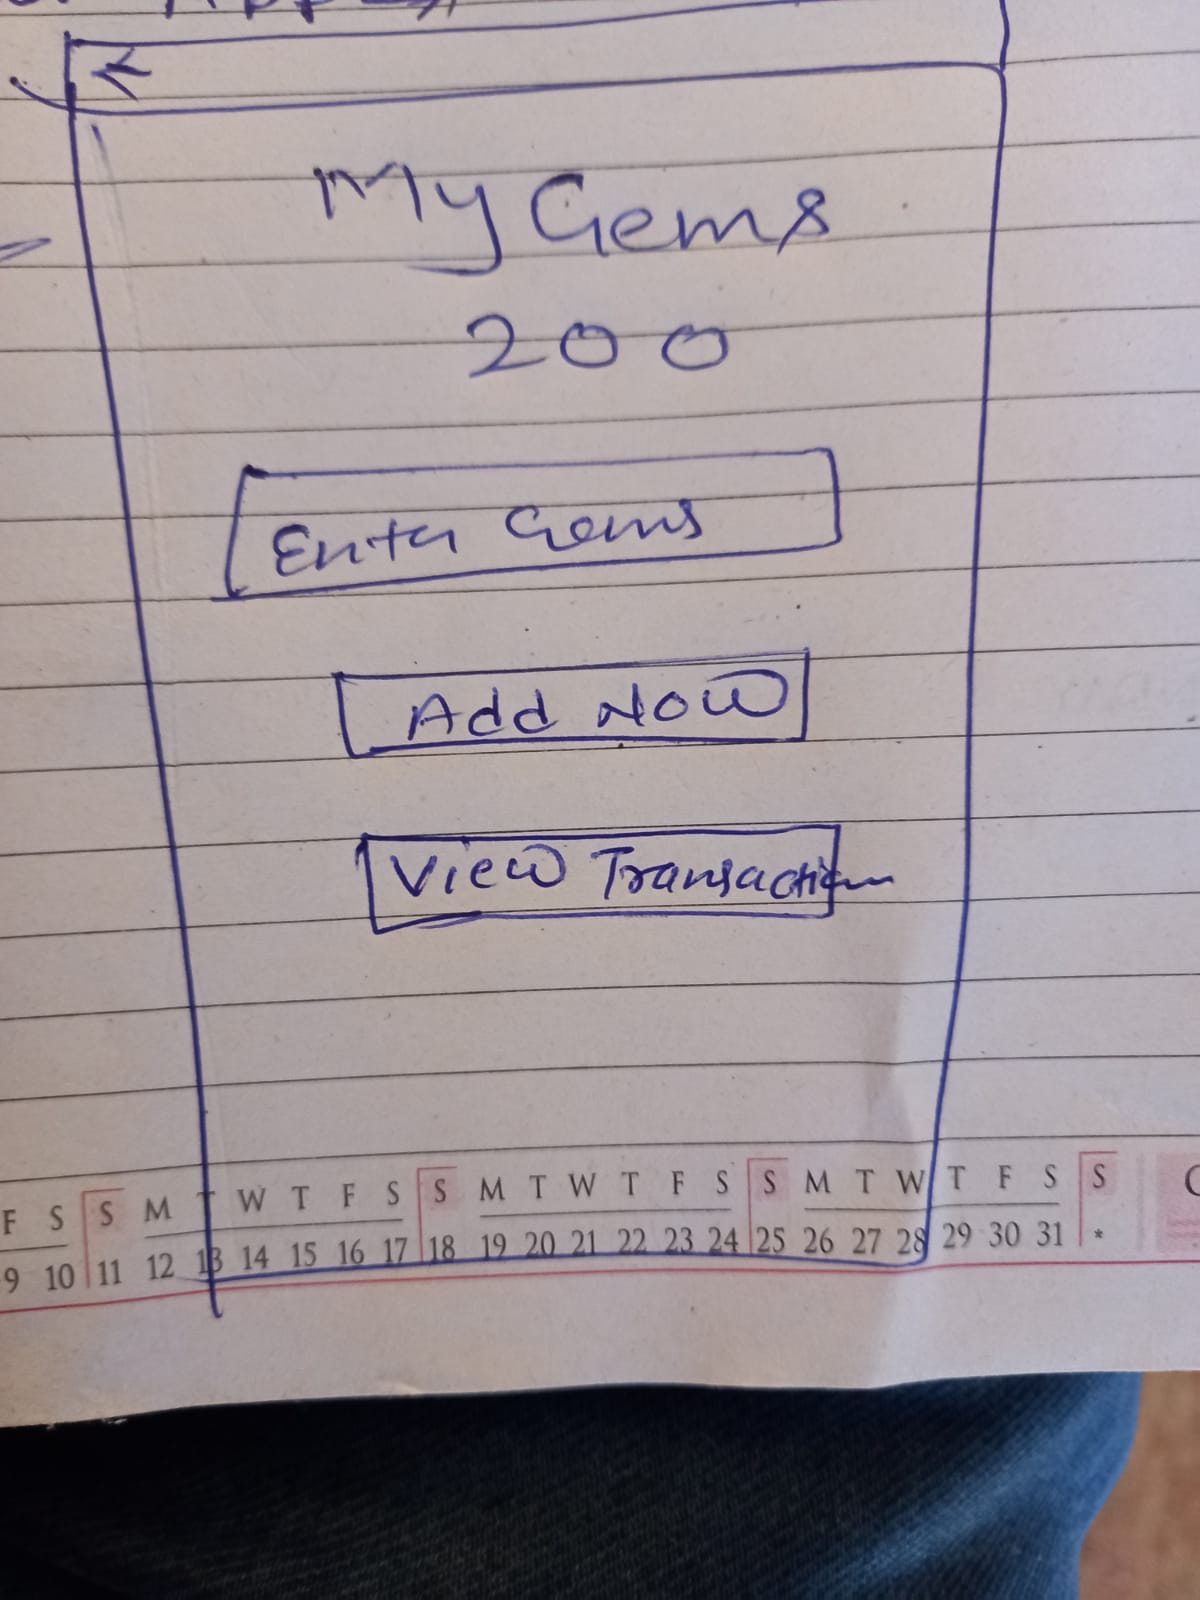 ←
My Gems
200
Enter Gems
Add Now
View Transaction
F S S M T W T F S S M T W T F S S M T W T F S S
9 10 11 12 13 14 15 16 17 18 19 20 21 22 23 24 25 26 27 28 29 30 31 *